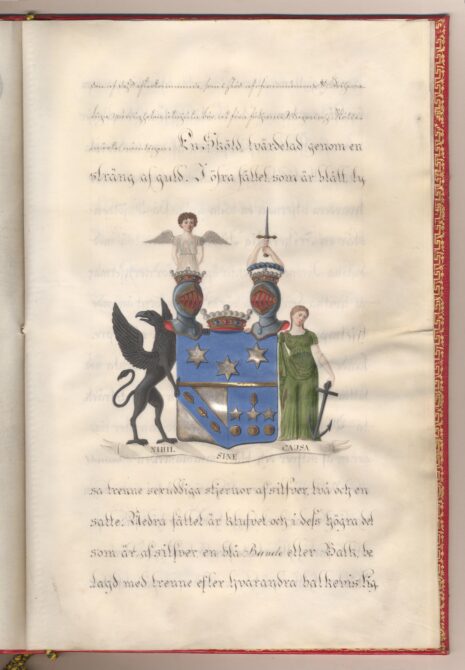 En Sköld, tvärdelad genom en
sträng af guld. I öfra fältet som är blått, ly
NIHIL SINE CAUSA
sa trenne sexuddiga stjernor af silfver, två och en
satte. Nedra fältet är klufvet och i dess högra del
som är af silfver en blå Bande eller Balk, be
lagd med trenne efter hvarandra balkevis lig